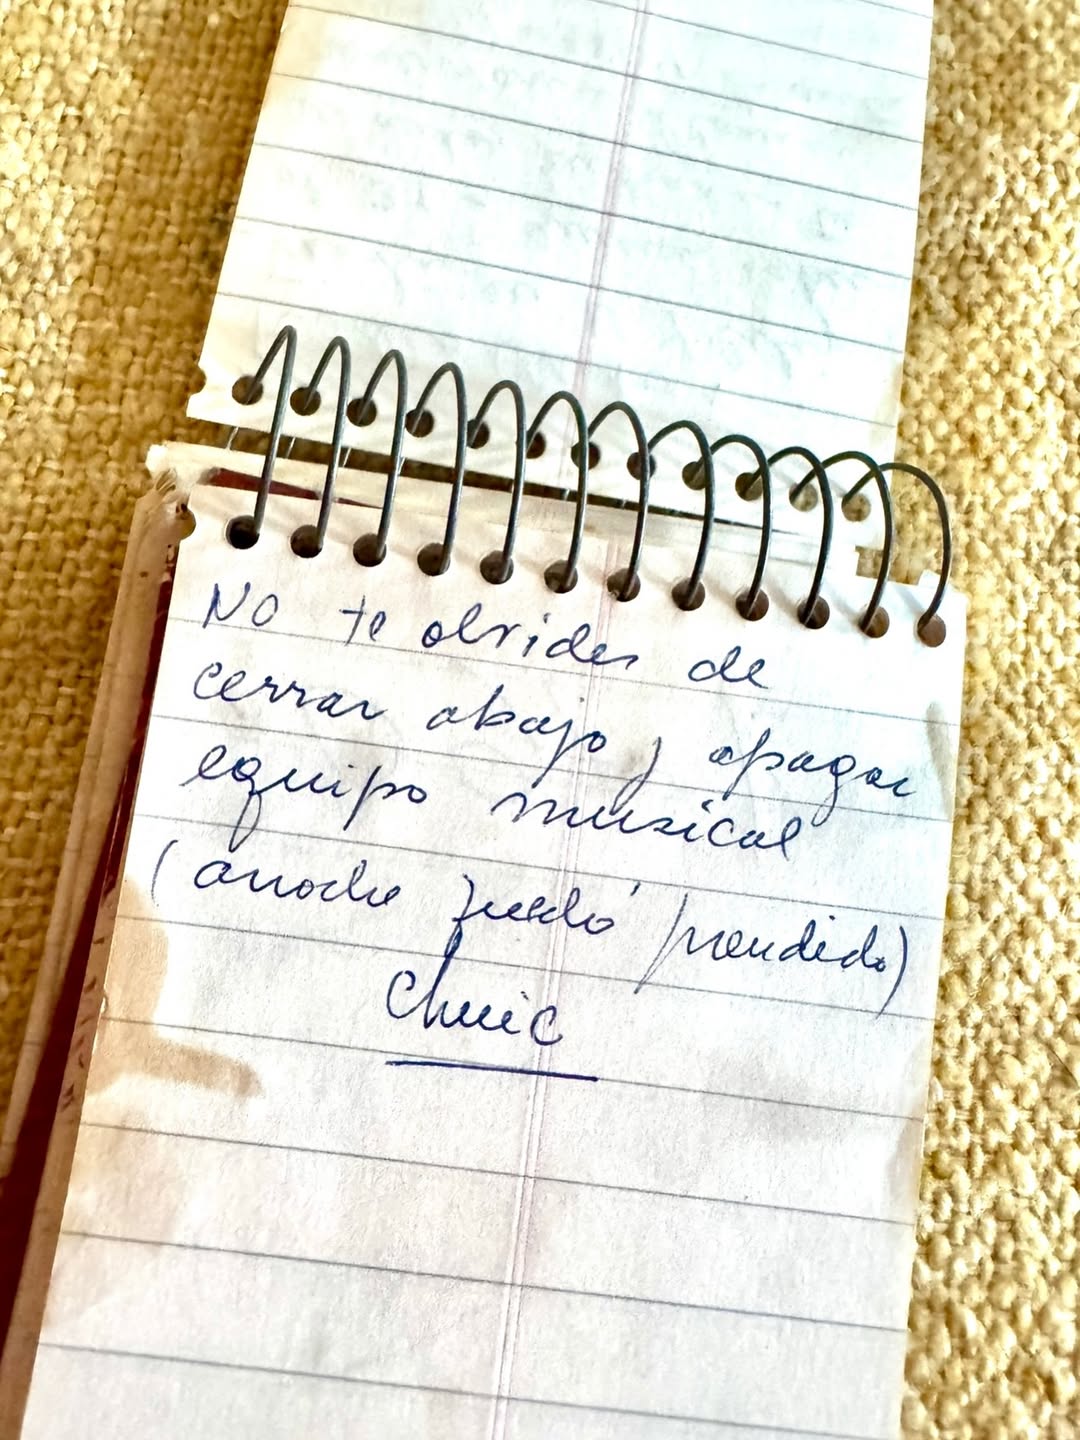 No te olvides de
cerrar abajo, apagar
equipo musical
(anoche quedó prendido)
Chuic